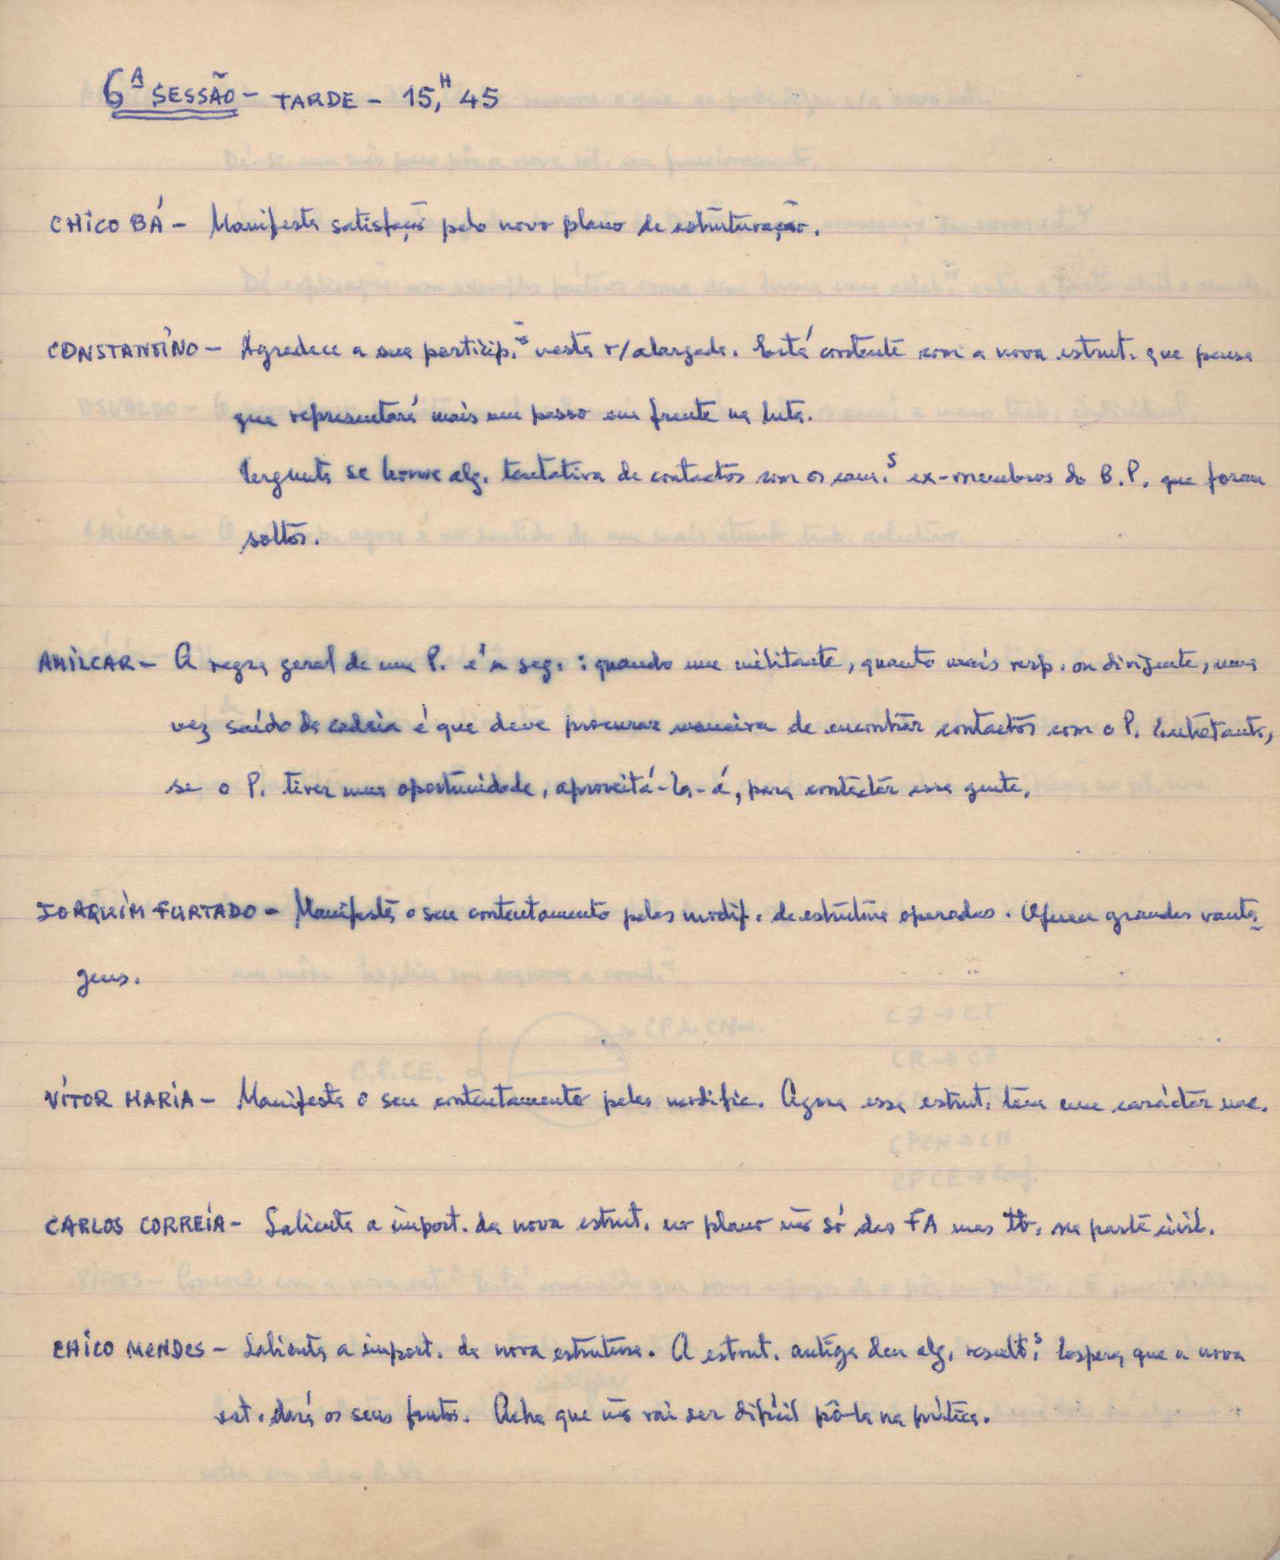 6ª SESSÃO - TARDE - 15,H 45
CHICO BÁ - Manifesta satisfação pelo novo plano de estruturação.
CONSTANTINO - Agradece a sua particip.ão nesta r/alargada. Está contente com a nova estrut. que pensa
que representará mais um passo em frente na luta.
Pergunta se houve alg. tentativa de contactos com os cam.s ex-membros do B.P. que foram
soltos.
AMÍLCAR - A regra geral de um P. é a seg.: quando um militante, quanto mais resp. ou dirigente, uma
vez saído da cadeia é que deve procurar maneira de encontrar contactos com o P. Entretanto,
se o P. tiver uma oportunidade, aproveitá-la-á, para contactar essa gente.
JOAQUIM FURTADO - Manifesta o seu contentamento pelas modif. de estrutura operadas. Oferece grandes vanta-
gens.
VÍTOR MARIA - Manifesta o seu contentamento pelas modific. Agora essa estrut. tem um carácter nac.
CARLOS CORREIA - Salienta a import. da nova estrut. no plano não só das FA mas tb. na parte civil.
CHICO MENDES - Salienta a import. da nova estrutura. A estrut. antiga deu alg. result.s Espera que a nova
est. dará os seus frutos. Acha que não vai ser difícil pô-la na prática.